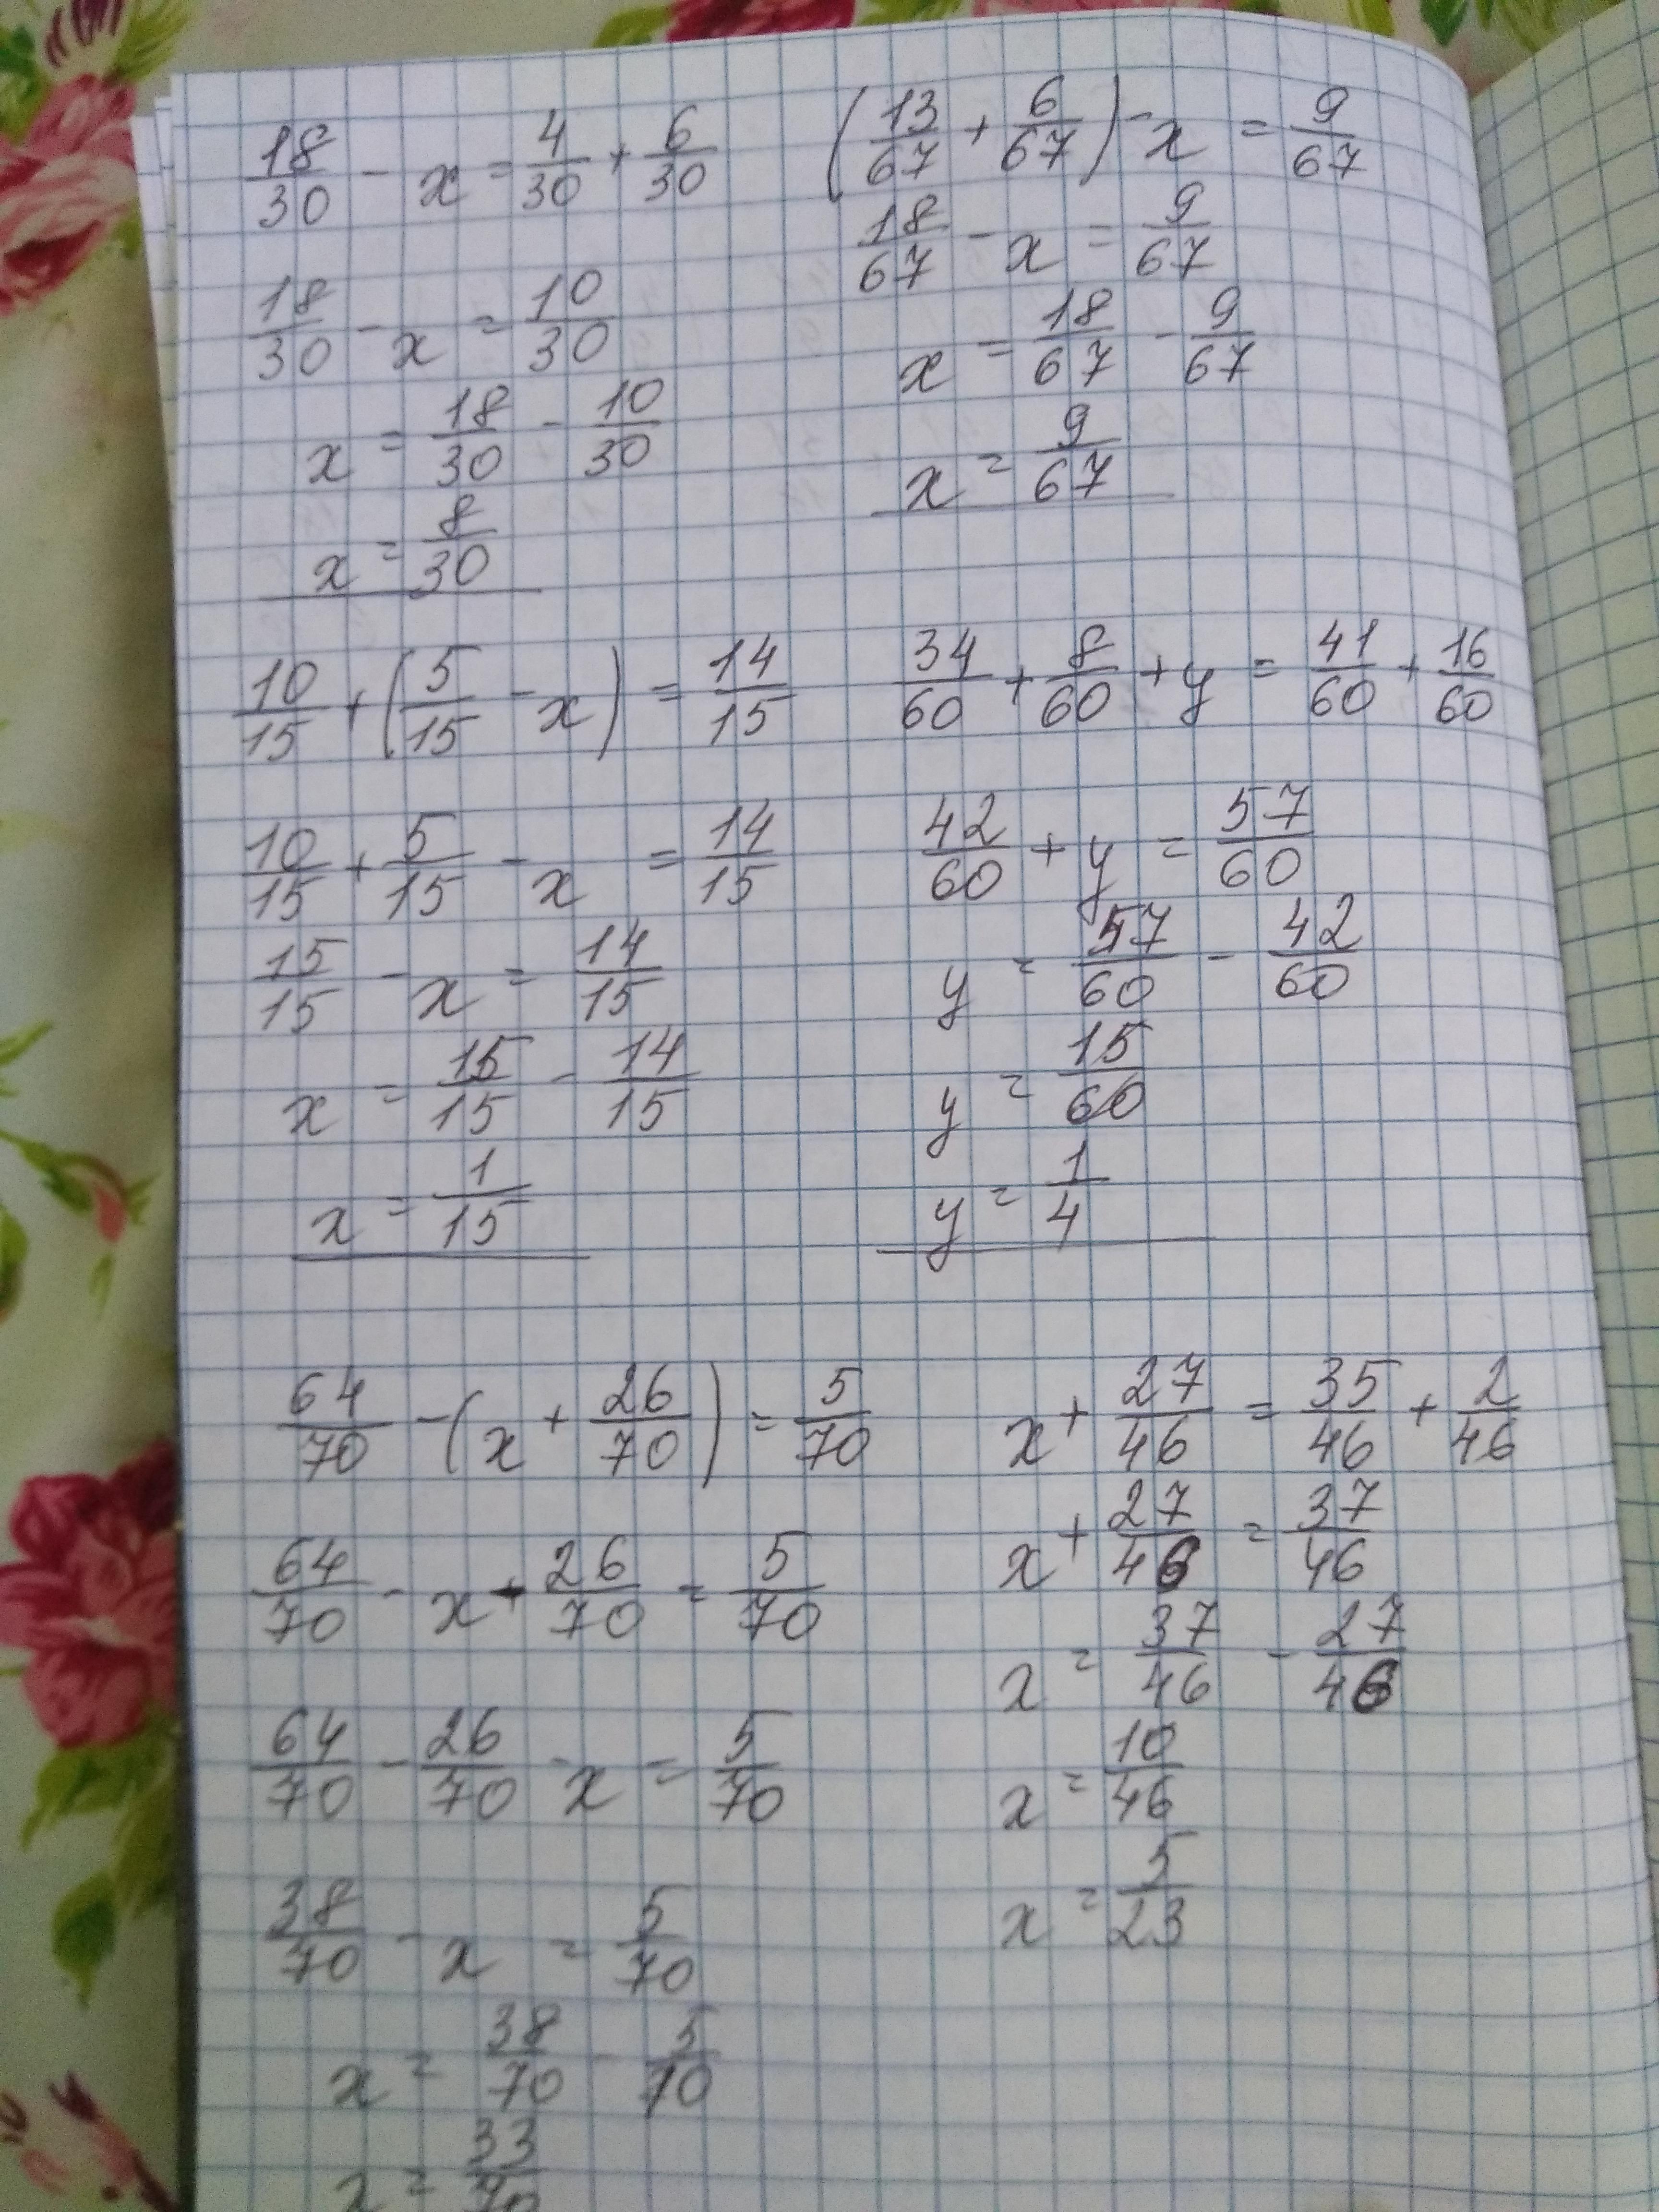 18/30 - x = 4/30 + 6/30
18/30 - x = 10/30
x = 18/30 - 10/30
x = 8/30
(13/67 + 6/67) - x = 9/67
18/67 - x = 9/67
x = 18/67 - 9/67
x = 9/67
10/15 + (5/15 - x) = 14/15
10/15 + 5/15 - x = 14/15
15/15 - x = 14/15
x = 15/15 - 14/15
x = 1/15
34/60 + 8/60 + y = 41/60 + 16/60
42/60 + y = 57/60
y = 57/60 - 42/60
y = 15/60
y = 1/4
64/70 - (x + 26/70) = 5/70
64/70 - x - 26/70 = 5/70
64/70 - 26/70 - x = 5/70
38/70 - x = 5/70
x = 38/70 - 5/70
x = 33/70
x + 27/46 = 35/46 + 2/46
x + 27/46 = 37/46
x = 37/46 - 27/46
x = 10/46
x = 5/23